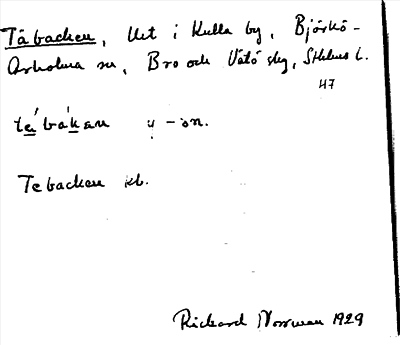 Täbacken, Urt i Kulla by, Björkö-
Arholma sn, Bro och Vätö skg, Sthlms l.
47
tä́bákan y -ön.
Tebacken kb.
Rickard Norrman 1929